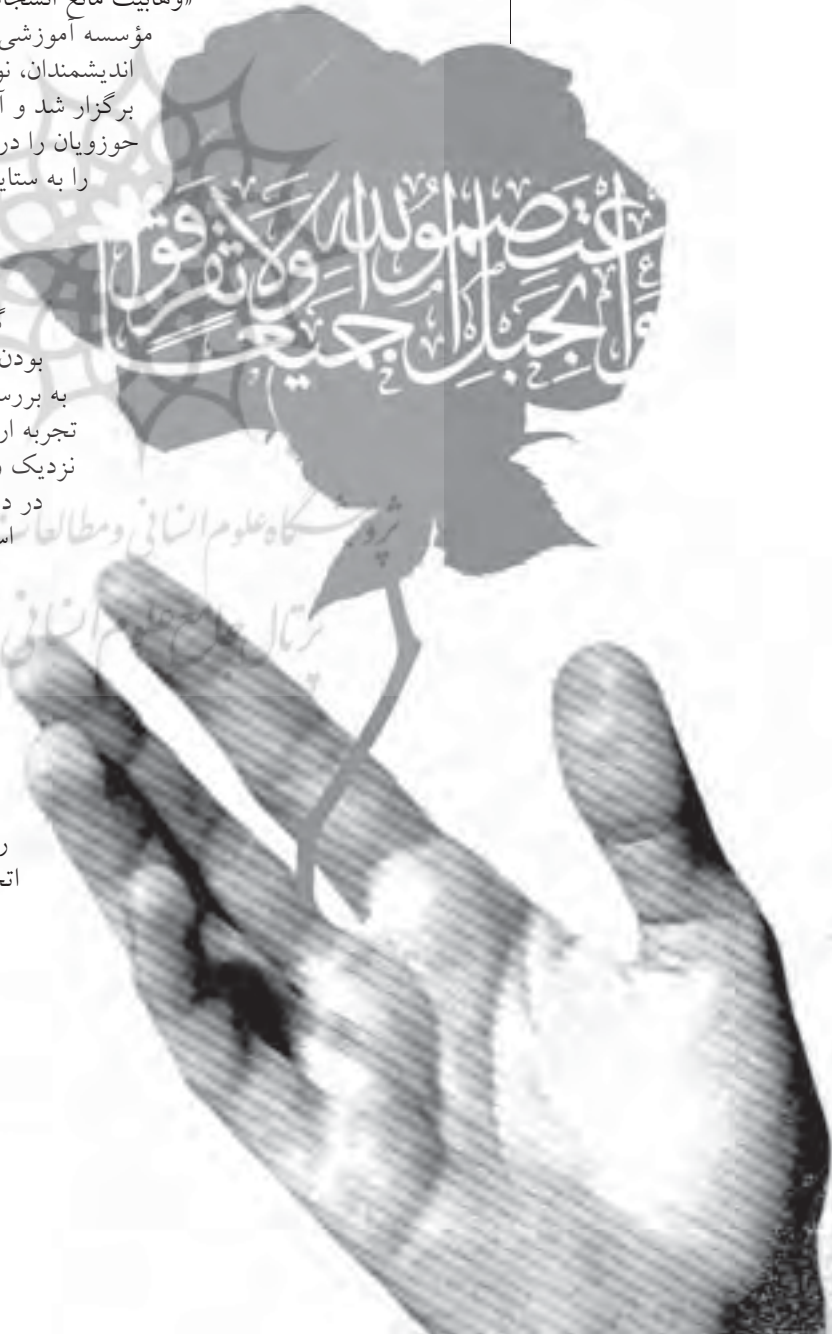 «وهابیت مانع
مؤسسه آموزشی
اندیشمندان،
برگزار شد و
حوزویان را در
را به
وَاعْتَصِمُوا بِحَبْلِ اللهِ جَمِيعًا وَلَا تَفَرَّقُوا
بودن
به
تجربه
نزدیک و
در
پژوهشگاه علوم انسانی و مطالعات
پرتال جامع علوم انسانی